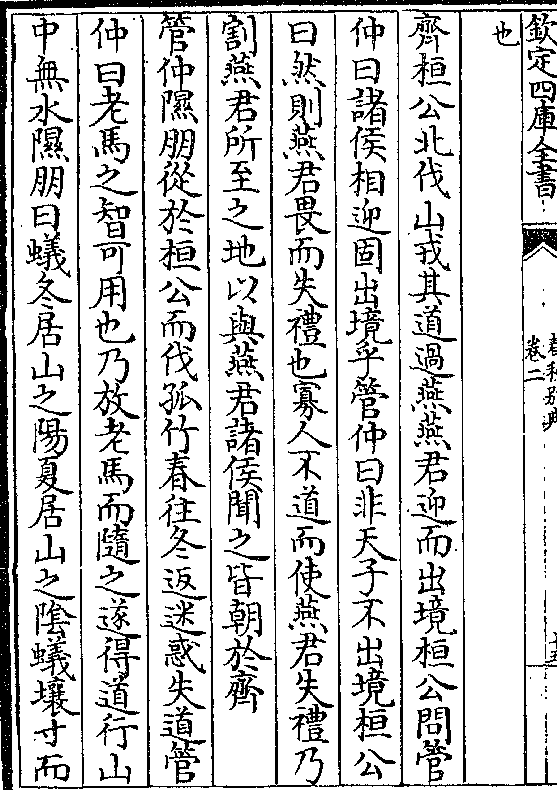 欽定四庫全書
卷二
也
齊桓公北伐山戎其道過燕燕君迎而出境桓公問管
仲曰諸侯相迎固出境乎管仲曰非天子不出境桓公
曰然則燕君畏而失禮也寡人不道而使燕君失禮乃
割燕君所至之地以與燕君諸侯聞之皆朝於齊
管仲隰朋從於桓公而伐孤竹春往冬返迷惑失道管
仲曰老馬之智可用也乃放老馬而隨之遂得道行山
中無水隰朋曰蟻冬居山之陽夏居山之陰蟻壤寸而